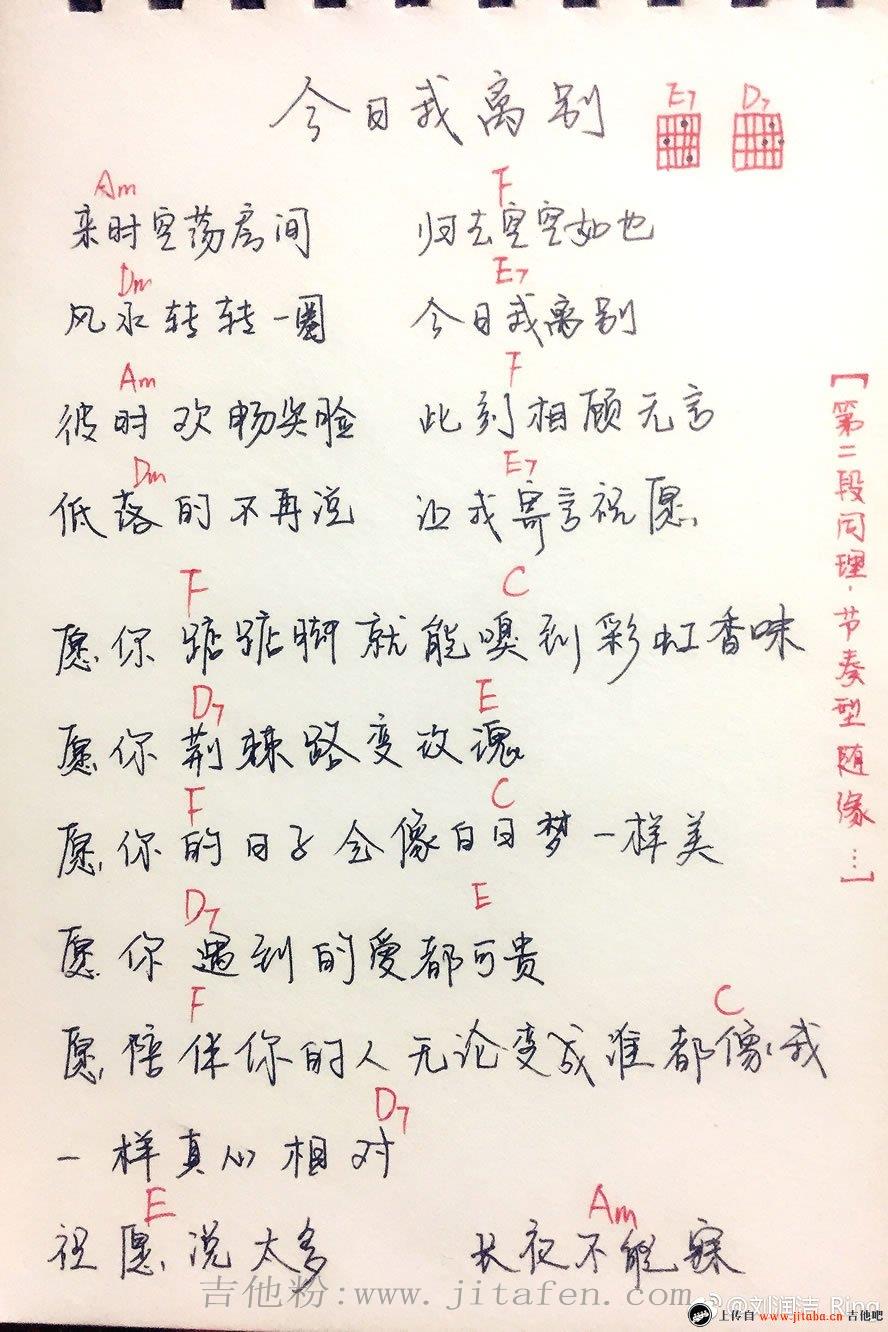 今日我离别 E7 D7
Am F
来时空荡房间 归去空空如也
Dm E7
风水转转一圈 今日我离别
Am F
彼时欢畅笑脸 此刻相顾无言
Dm E7
低落的不再说 让我寄言祝愿
F C
愿你踮踮脚就能嗅到彩虹香味
D7 E
愿你荆棘路变玫瑰
F C
愿你的日子会像白日梦一样美
D7 E
愿你遇到的爱都可贵
F C
愿陪伴你的人无论变成谁都像我
D7
一样真心相对
E Am
祝愿说太多 长夜不能寐
[第二段同理·节奏型随缘…]
吉他粉:www.jitafen.com
@刘润洁_Ring
上传自 www.jitaba.cn 吉他吧